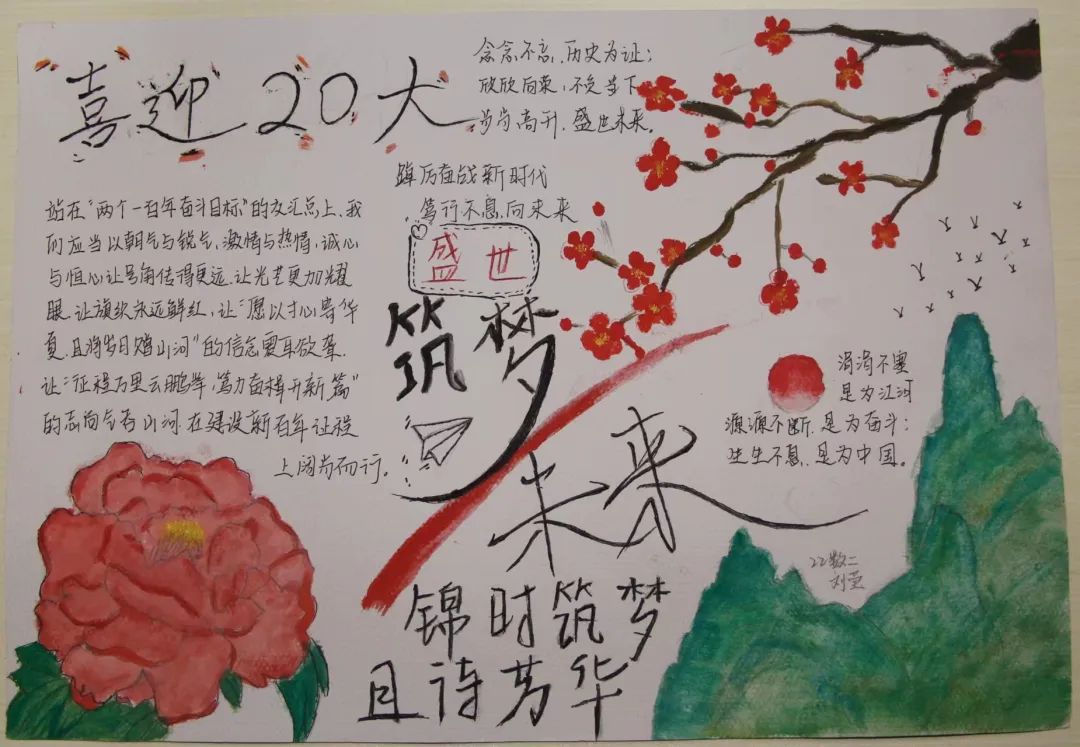 喜迎20大
念念不忘,历史为证;
欣欣向荣,不负当下
步步高升,盛世未来。
踔厉奋战新时代
笃行不息,向未来
盛世
筑梦
未来
站在"两个一百年奋斗目标"的交汇点上,我
们应当以朝气与锐气,激情与热情,诚心
与恒心让号角传得更远,让光芒更加耀
眼,让旗帜永远鲜红,让"愿以寸心寄华
夏,且将岁月赠山河"的信念震耳欲聋,
让"征程万里云鹏举,笃力奋楫开新篇"
的志向气吞山河,在建设新百年征程
上阔步而行。
涓涓不塞
是为江河
源源不断,是为奋斗;
生生不息,是为中国。
22数二
刘莹
锦时筑梦
且诗芳华